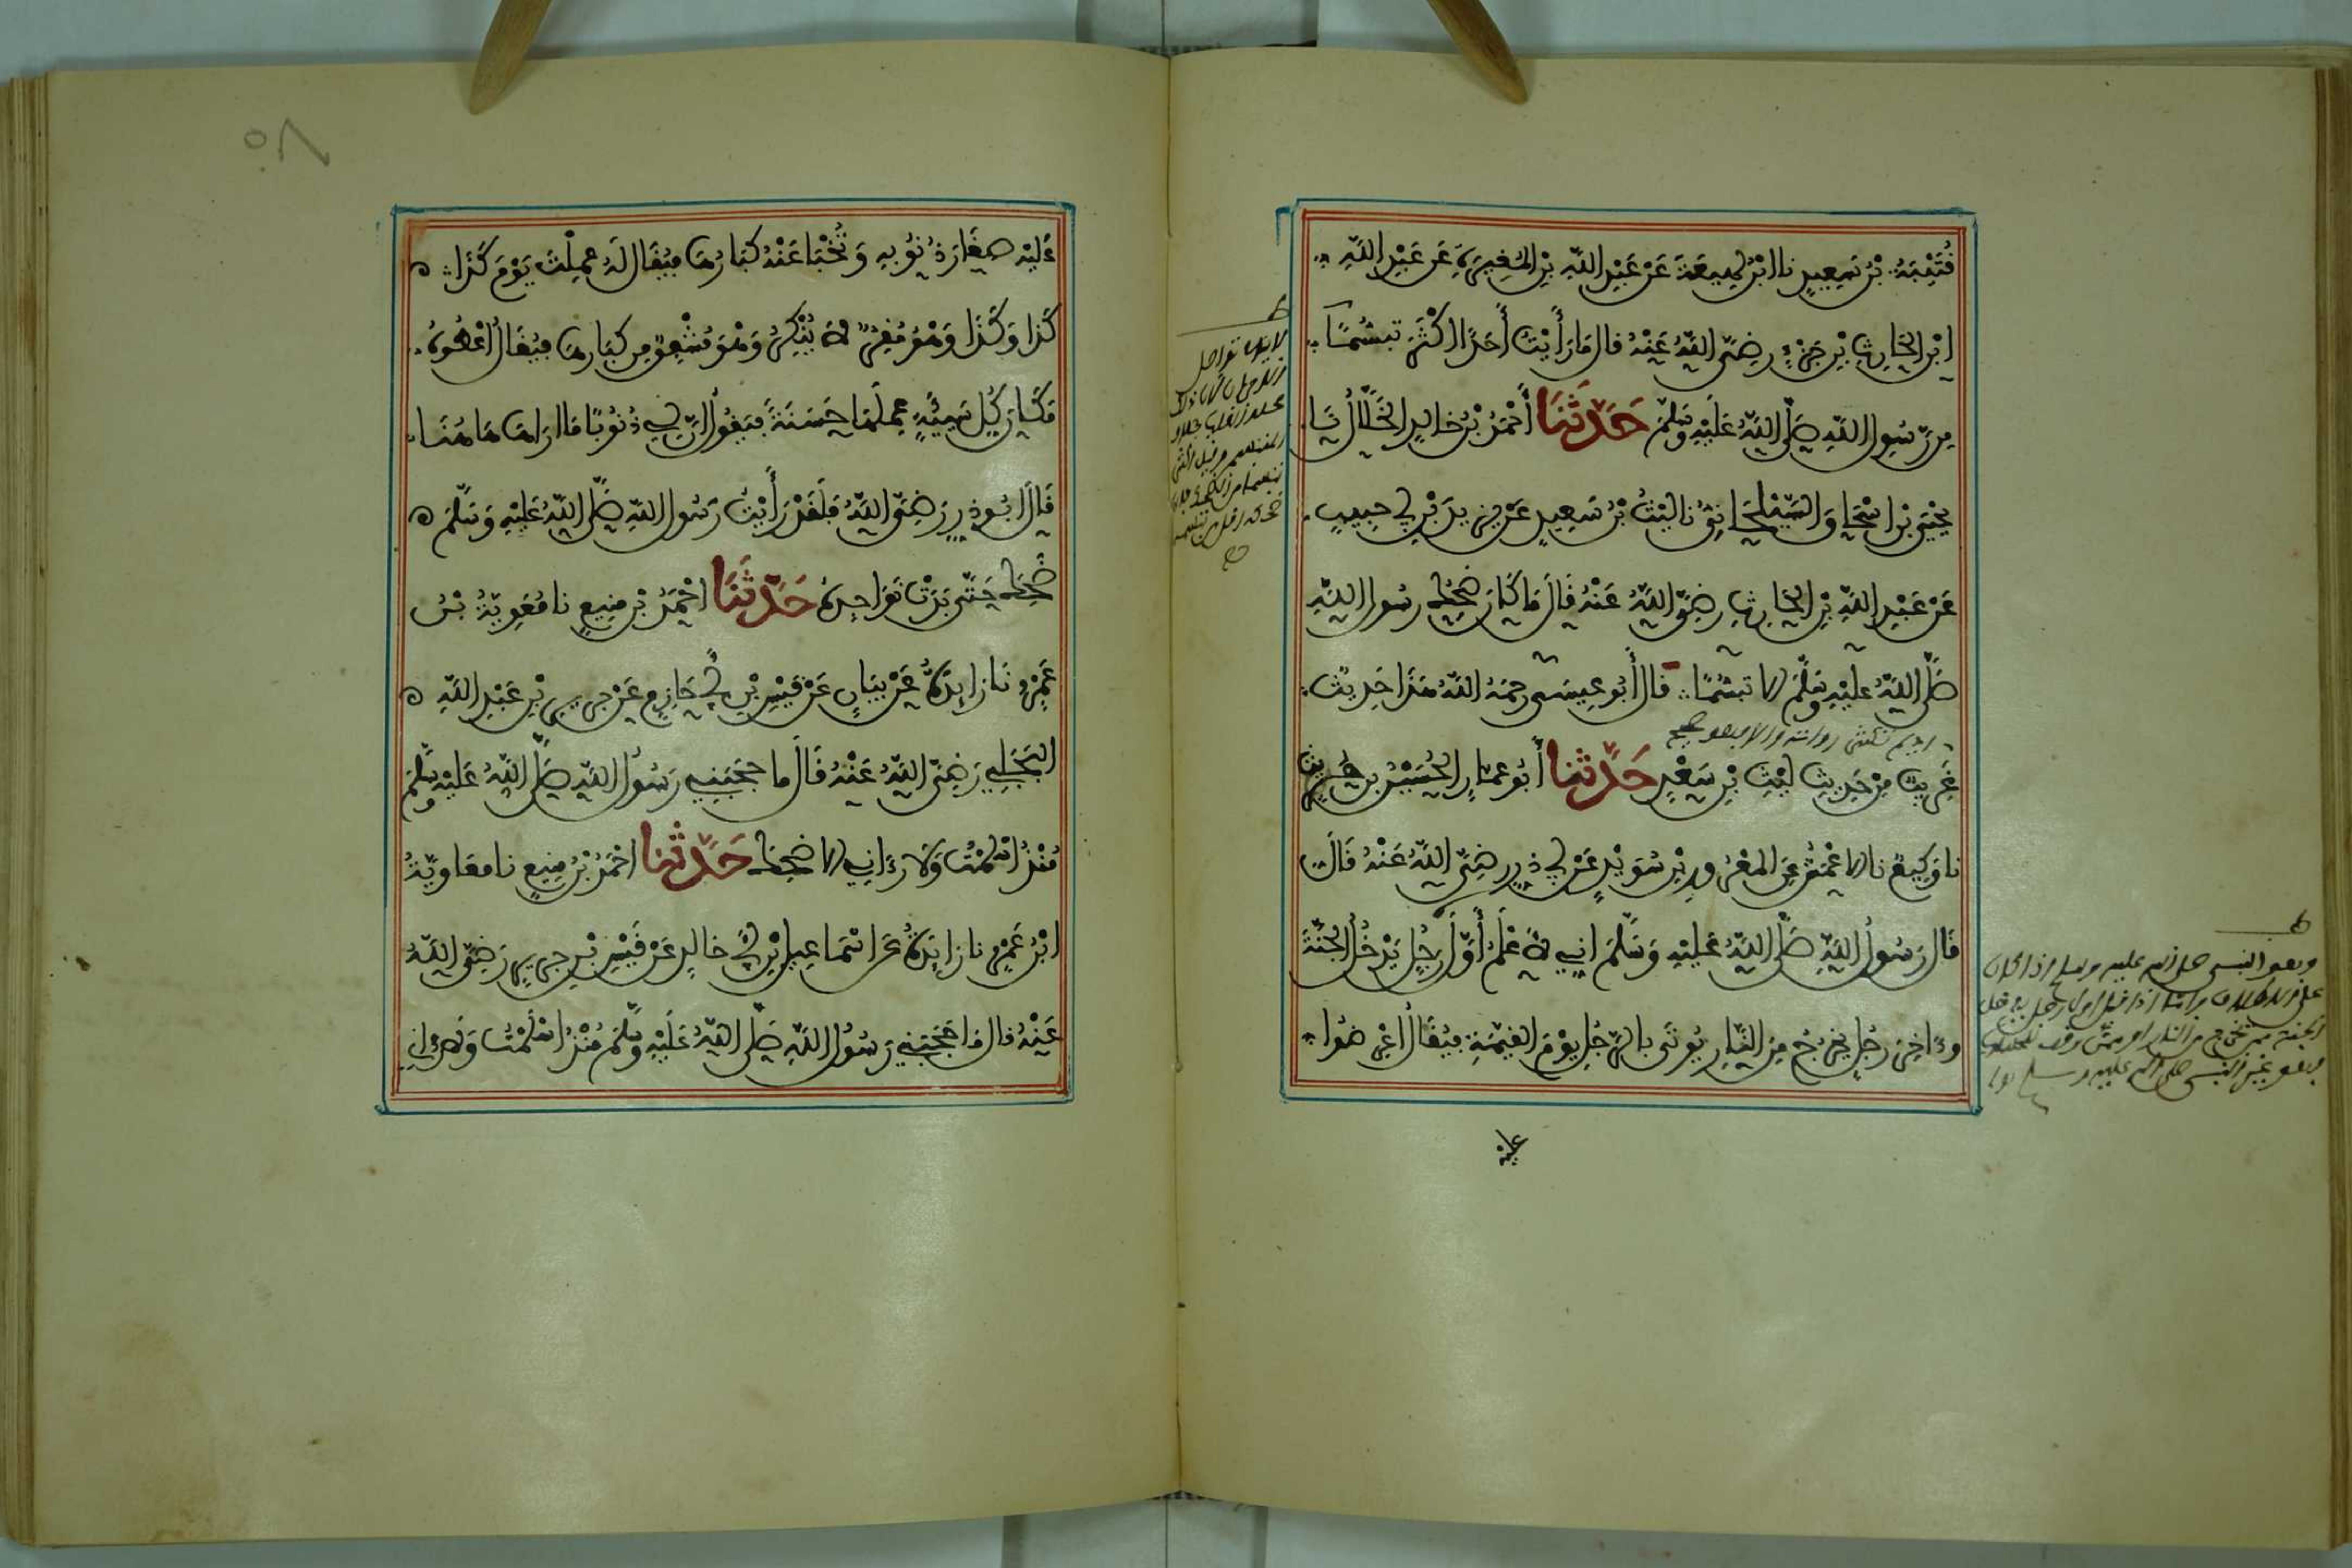 قُتَيْبَةُ بْنُ سَعِيدٍ نا ابْنُ لَهِيعَةَ عَنْ عَبْدِ اللَّهِ بْنِ الْمُغِيرَةِ عَنْ عَبْدِ اللَّهِ
ابْنِ الْحَارِثِ بْنِ جَزْءٍ رَضِيَ اللَّهُ عَنْهُ قَالَ مَا رَأَيْتُ أَحَدًا اكْثَرَ تَبَسُّمًا
مِن رَّسُولِ اللَّهِ صَلَّى اللَّهُ عَلَيْهِ وَسَلَّمَ حَدَّثَنَا أَحْمَدُ بْنُ خَالِدٍ الْخَلَّالُ نَا
يَحْيَى بْنُ اسْحَاقَ السَّيْلَحَانِيُّ نا لَيْثُ بْنُ سَعِيدٍ عَنْ يَزِيدَ بْنِ أَبِي حَبِيبٍ
عَنْ عَبْدِ اللَّهِ بْنِ الْحَارِثِ رَضِيَ اللَّهُ عَنْهُ قَالَ مَا كَانَ ضَحِكُ رسُولِ اللَّهِ
صَلَّى اللَّهُ عَلَيْهِ وَسَلَّمَ إلا تَبَسُّمًا قَالَ أَبُو عِيسَى رحمَهُ اللَّهُ هَذَا حَدِيثٌ
غَرِيبٌ مِنْ حَدِيثِ لَيْثِ بْنِ سَعْدٍ حَدَّثَنَا أَبُو عمارٍ الْحُسَيْنُ بن حُرَيْثٍ
نا وَكِيعٌ نا الاعْمَشُ عَنِ المَعْرُورِ بْنِ سُوَيْدٍ عَنْ أَبِي ذَرٍّ رضِيَ اللَّهُ عَنْهُ قَالَ
قَالَ رَسُولُ اللَّهِ صَلَّى اللَّهُ عَلَيْهِ وَسَلَّمَ انِّي لأَعْلَمُ أَوَّلَ رَجُلٍ يَدْخُلُ الْجَنَّةَ
وءاخِرَ رجُلٍ يَخْرُجُ مِنَ النَّارِ يُوتَى بِالرَّجُلِ يَوْمَ الْقِيَمَةِ فَيُقَالُ اعْرِضُوا
عليْه
عَلَيْهِ صِغَارَ ذُنُوبِهِ وَتُخْبَأ عَنْهُ كِبَارُهَا فَيُقَالُ لَهُ عَمِلْتَ يَوْمَ كَذَا
كَذَا وَكَذَا وَهُوَ مُقِرٌّ لاَ يُنْكِرُ وَهْوَ مُشْفِقٌ مِن كِبَارِهَا فَيُقَالُ اعْطُوهُ
مَكَانَ كُلِّ سَيِّئَةٍ عَمِلَهَا حَسَنَةً فَيَقُولُ إنَّ لِي ذُنُوبًا مَا أرَاهَا هَاهُنَا
قَالَ ابُو ذَرٍّ رَضِيَ اللَّهُ فَلَقَدْ رَأَيْتُ رَسُولَ اللَّهِ صَلَّى اللَّهُ عَلَيْهِ وَسَلَّمَ
ضَحِكَ حَتَّى بَدَتْ نَوَاجِذُهُ حَدَّثَنَا احْمَدُ بْن مَنِيعٍ نا مُعَوِيَةُ بْنُ
عَمْرٍو نَا زَايِدَةُ عَنْ بَيَانٍ عَنْ قَيْسِ بْنِ أَبِي حَازِمٍ عَنْ جَرِيرِ بْنِ عَبْدِ اللَّهِ
البَجَلِيِّ رَضِيَ اللَّهُ عَنْهُ قَالَ ما حَجَبَنِي رَسُولُ اللَّهِ صَلَّى اللَّهُ عَلَيْهِ وَسَلَّمَ
مُنْذُ اسْلَمْتُ وَلاَ رَءَانِي إلا ضَحِكَ حَدَّثَنَا احْمَدُ بْنُ مَنِيعٍ نا معَاوِيَةُ
ابْنُ عَمْرٍو نا زَايِدَةُ عَن اسْمَاعِيلَ بْنِ أَبِي خالِدٍ عَنْ قَيْسٍ عَن جَرِيرٍ رَضِيَ اللَّهُ
عَنْهُ قال مَا حَجَبَنِي رَسُولُ اللَّهِ صَلَّى اللَّهُ عَلَيْهِ وَسَلَّمَ مُنْذُ اسْلَمْتُ وَلاَ رَءَانِي